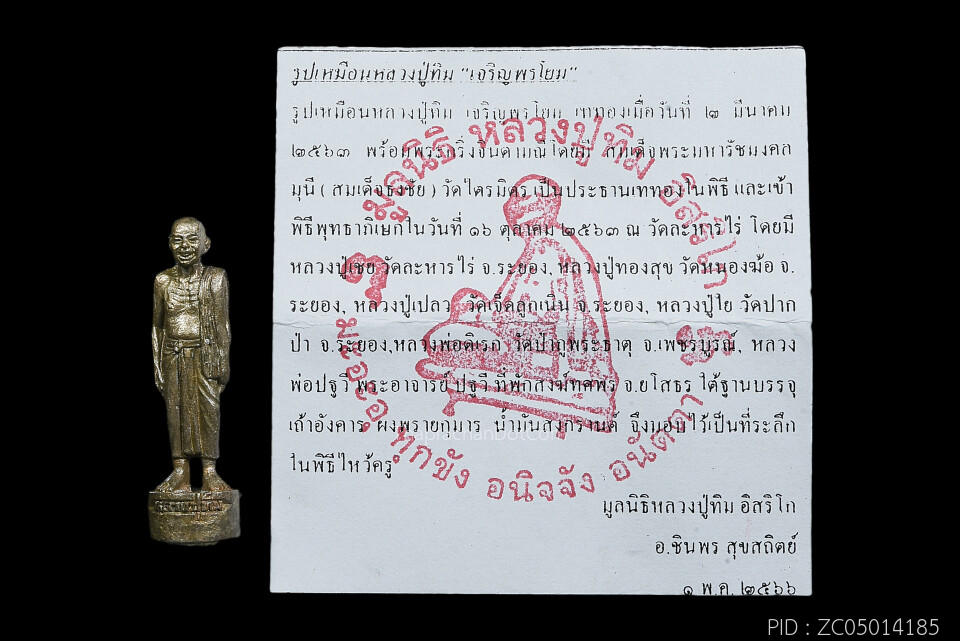 รูปเหมือนหลวงปู่ทิม "เจริญพรโยม"
รูปเหมือนหลวงปู่ทิม เจริญพรโยม เททองเมื่อวันที่ ๒ มีนาคม
๒๕๖๓ พร้อมพระกริ่งจินดามณีโดยมี สมเด็จพระมหารัชมงคล
มุนี ( สมเด็จธงชัย ) วัดไตรมิตร เป็นประธานเททองในพิธี และเข้า
พิธีพุทธาภิเษกในวันที่ ๑๖ ตุลาคม ๒๕๖๓ ณ วัดละหารไร่ โดยมี
หลวงปู่เชย วัดละหารไร่ จ.ระยอง, หลวงปู่ทองสุข วัดหนองฆ้อ จ.
ระยอง, หลวงปู่เปลว วัดเจ็ดลูกเนิน จ.ระยอง, หลวงปู่ใย วัดปาก
ป่า จ.ระยอง,หลวงพ่อดิเรก วัดป่าภูพระธาตุ จ.เพชรบูรณ์, หลวง
พ่อปฐวี พระอาจารย์ ปฐวี ที่พักสงฆ์ทศพร จ.ยโสธร ใต้ฐานบรรจุ
เถ้าอังคาร ผงพรายกุมาร น้ำมันสงกรานต์ จึงมอบไว้เป็นที่ระลึก
ในพิธีไหว้ครู
มูลนิธิหลวงปู่ทิม อิสริโก
อ.ชินพร สุขสถิตย์
๑ พ.ค. ๒๕๖๖
มูลนิธิ หลวงปู่ทิม อิสริโก
มะอะอุ ทุกขัง อนิจจัง อนัตตา
PID : ZC05014185